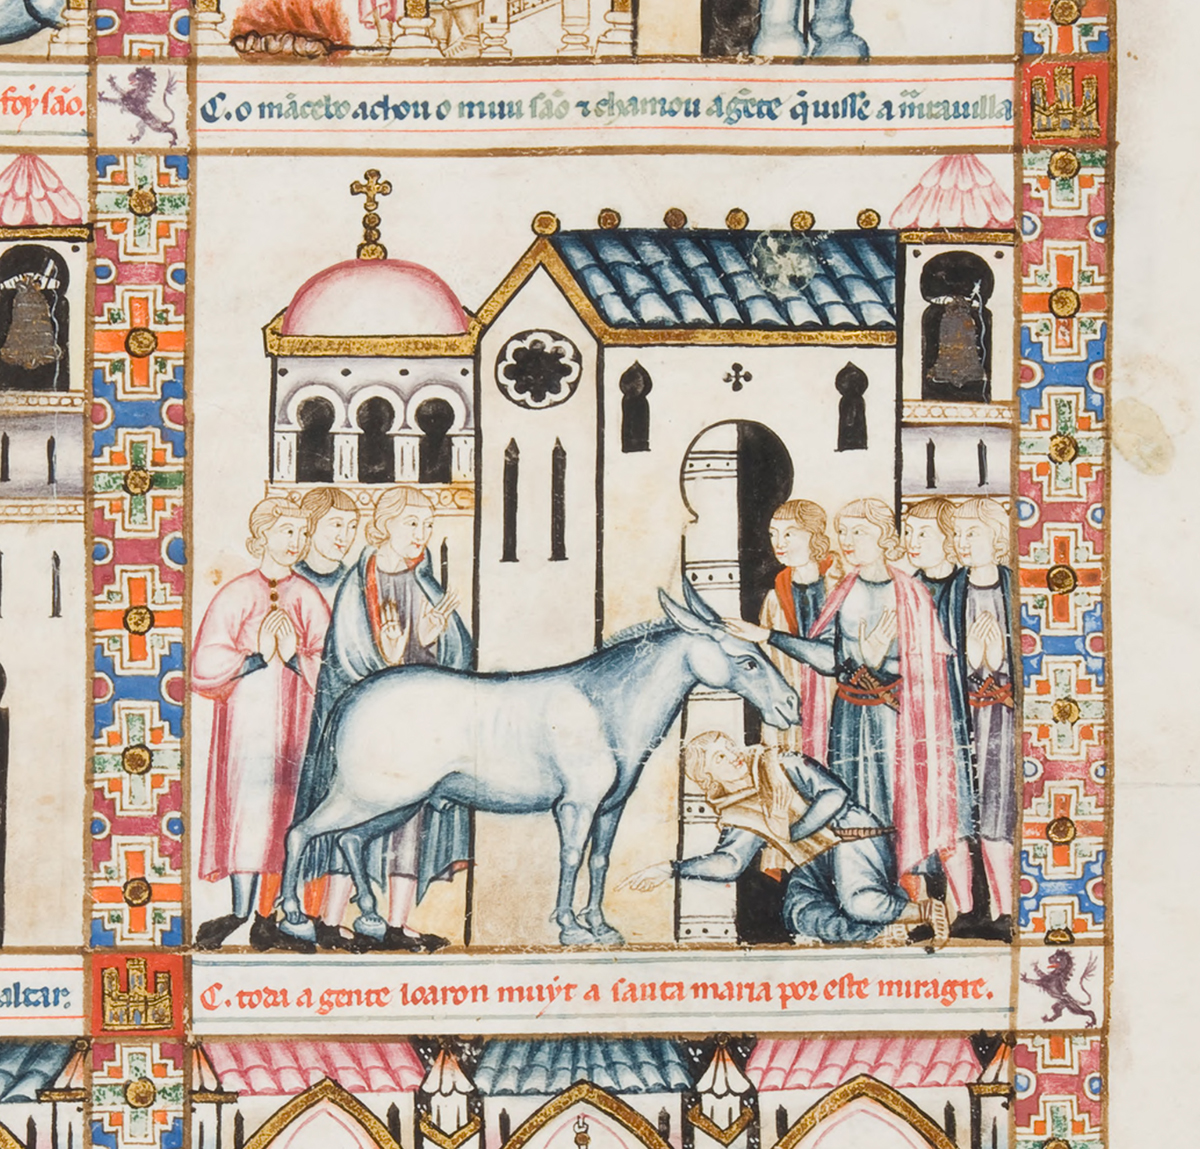 foỹ são.
C. o mãcebo achou o muu são ⁊ chamou a gẽte q̃ uisse a mirauilla
altar.
C. toda a gente loaron muỹt a santa maria por este miragre.